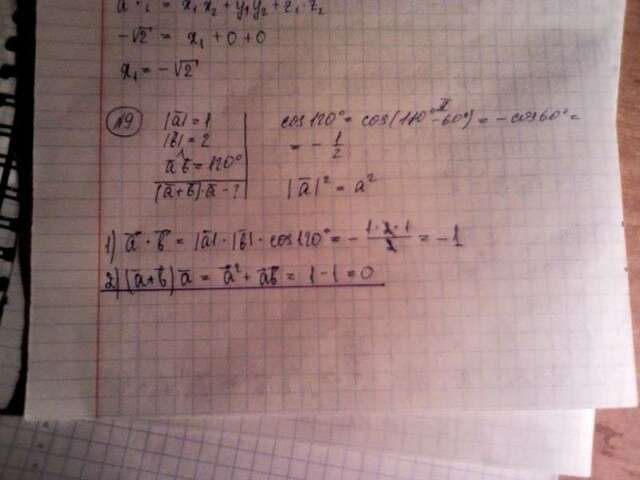 a · i = x₁x₂ + y₁y₂ + z₁·z₂
-√2 = x₁ + 0 + 0
x₁ = -√2
№9
|a̅| = 1
|b̅| = 2
a̅^b̅ = 120°
(a̅+b̅)·a̅ - ?
cos120° = cos(180° - 60°) = -cos60° =
= - 1/2
|a̅|² = a²
1) a̅ · b̅ = |a̅| · |b̅| · cos120° = - 1·2·1/2 = -1
2) (a̅+b̅) a̅ = a̅² + a̅b̅ = 1 - 1 = 0